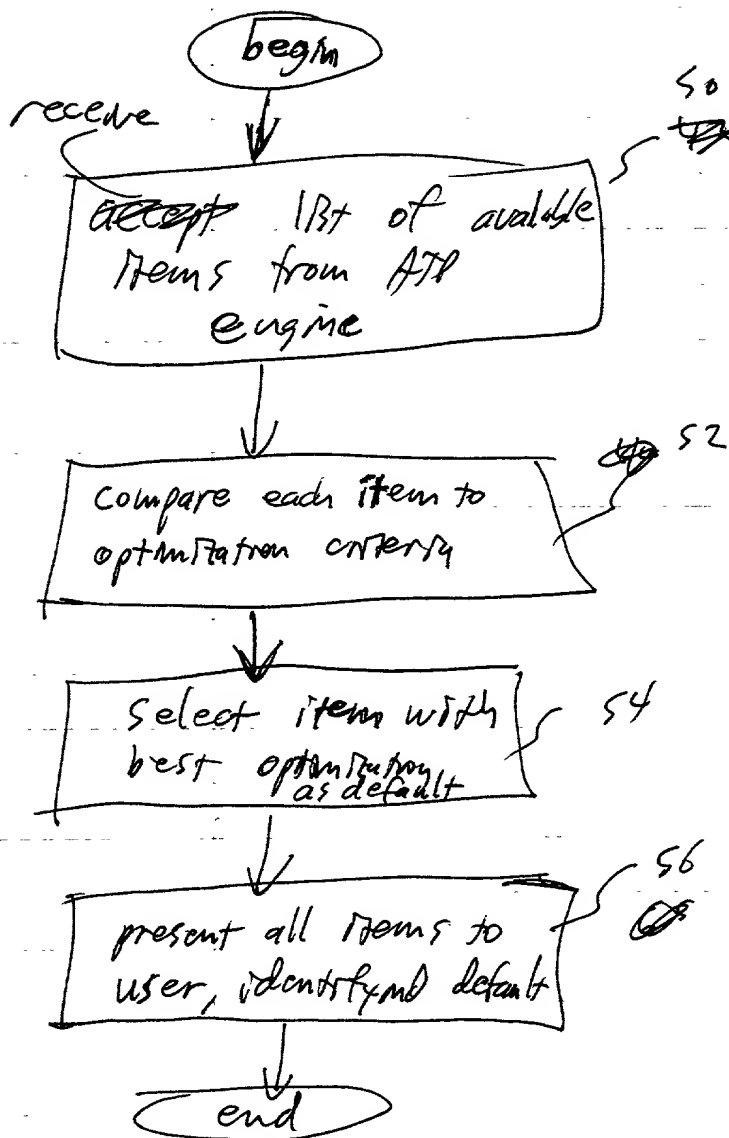 begin
receive
50
accept list of available
items from ATP
engine
52
compare each item to
optimization criteria
select item with
54
best optimization
as default
56
present all items to
user, identifying default
end